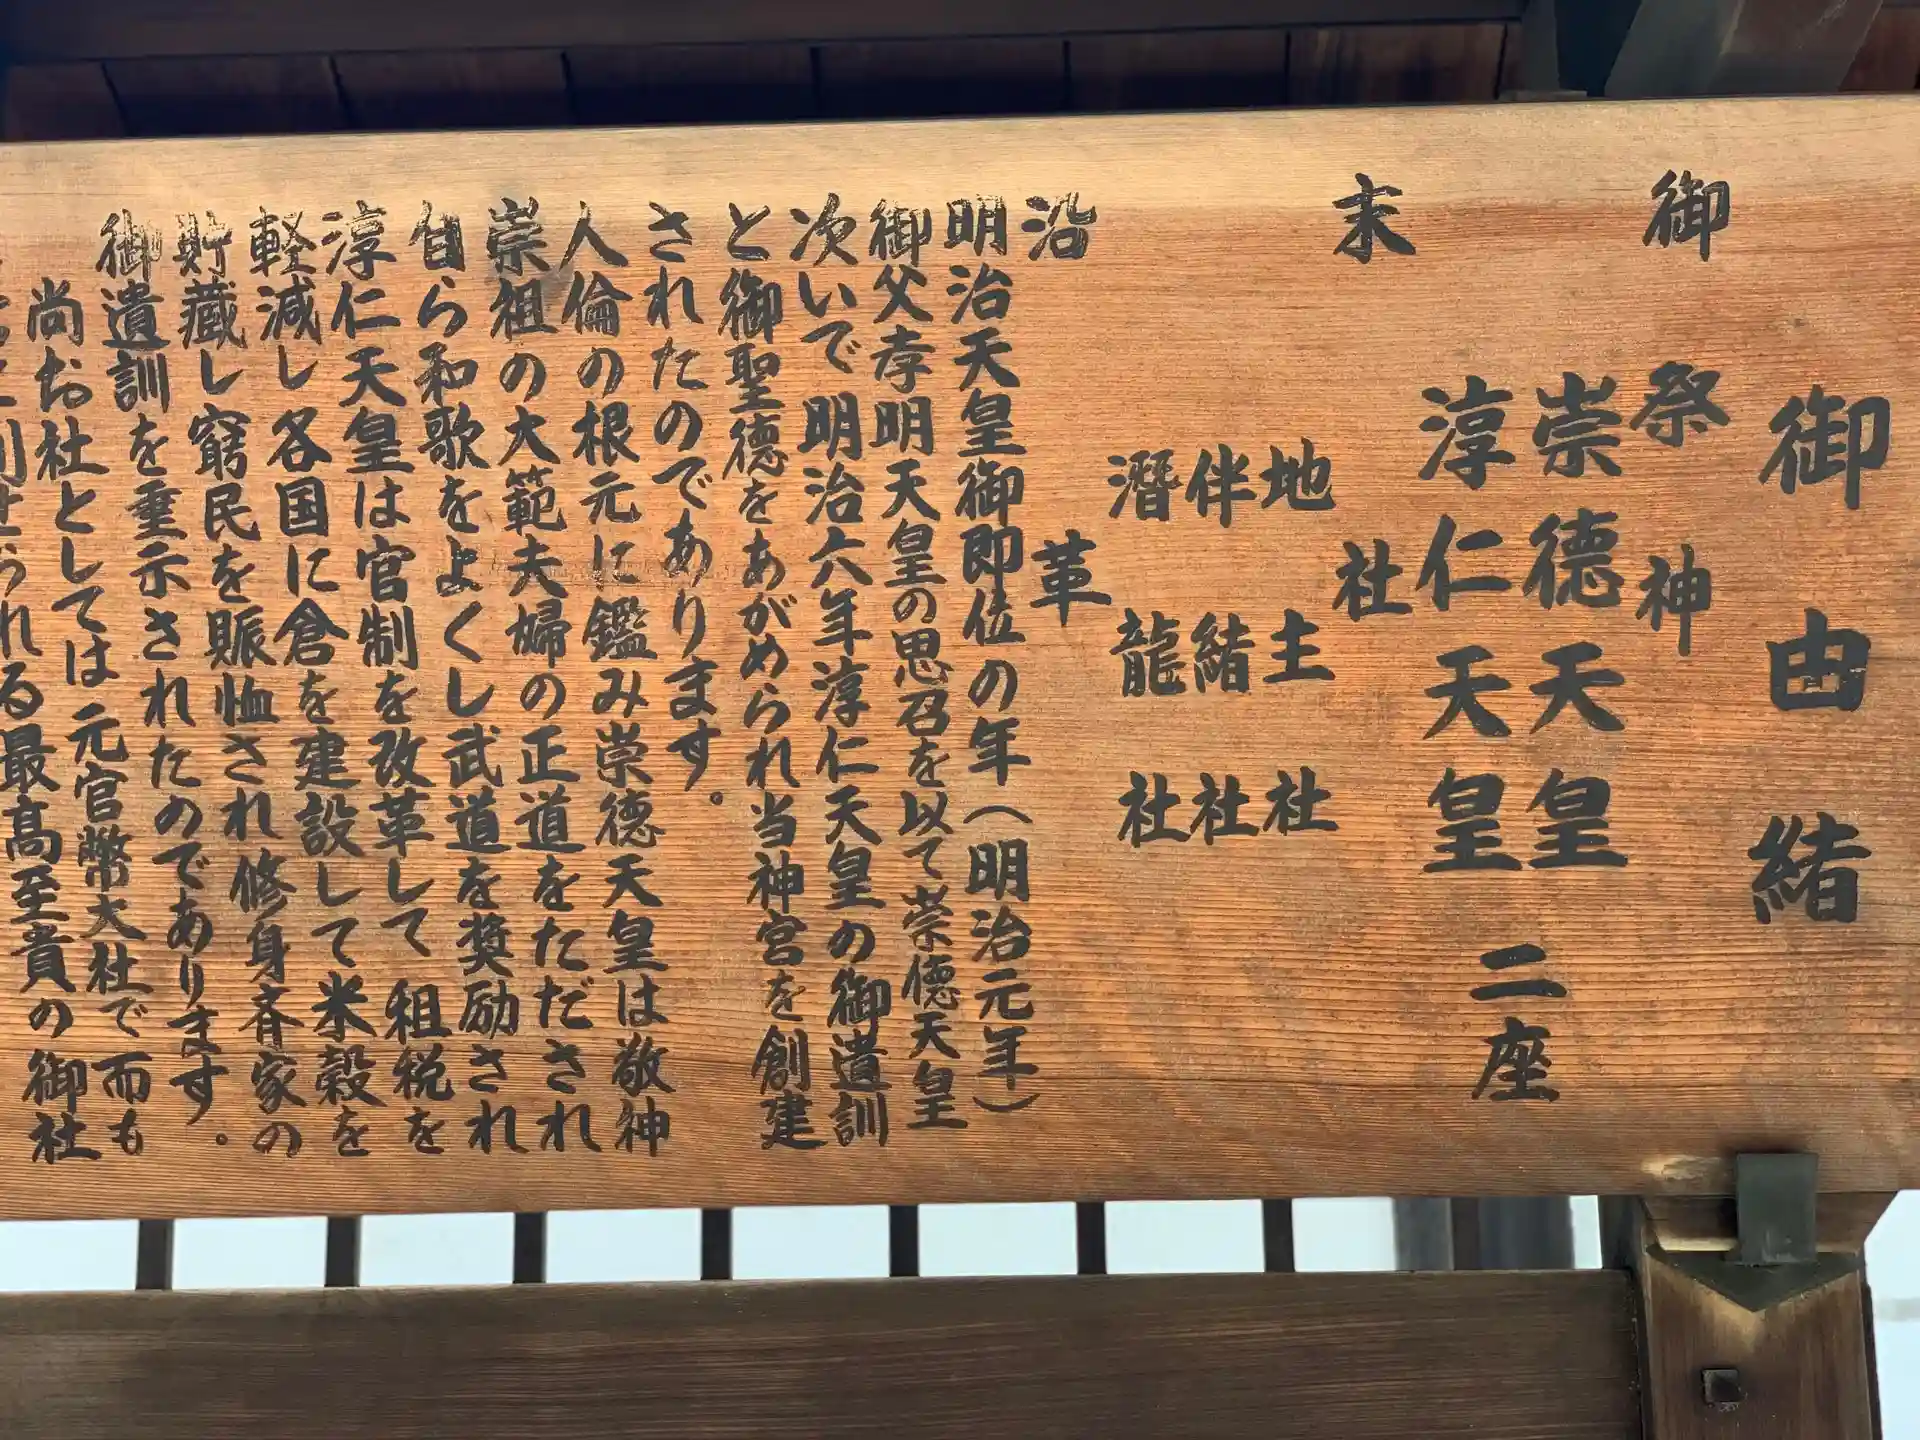 御由緒
御祭神
崇德天皇
淳仁天皇
二座
末社
地主社
伴緒社
潛龍社
沿革
明治天皇御即位の年(明治元年)
御父孝明天皇の思召を以て崇德天皇
次いで明治六年淳仁天皇の御遺訓
と御聖德をあがめられ当神宮を創建
されたのであります。
人倫の根元に鑑み崇德天皇は敬神
崇祖の大範夫婦の正道をただされ
自ら和歌をよくし武道を奨励され
淳仁天皇は官制を改革して租税を
軽減し各国に倉を建設して米穀を
貯蔵し窮民を賑恤され修身斉家の
御遺訓を垂示されたのであります。
尚お社としては元官幣大社で而も
られる最高至貴の御社